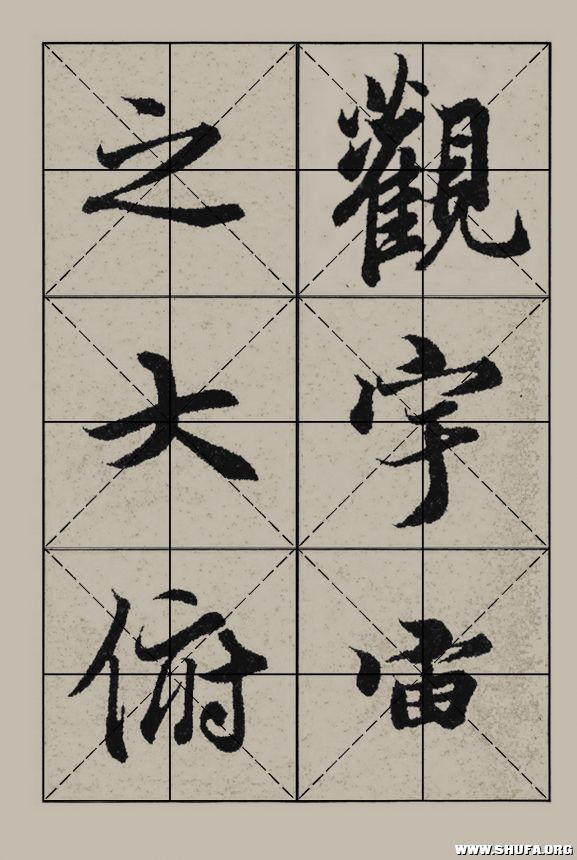 觀宇宙
之大俯
WWW.SHUFA.ORG